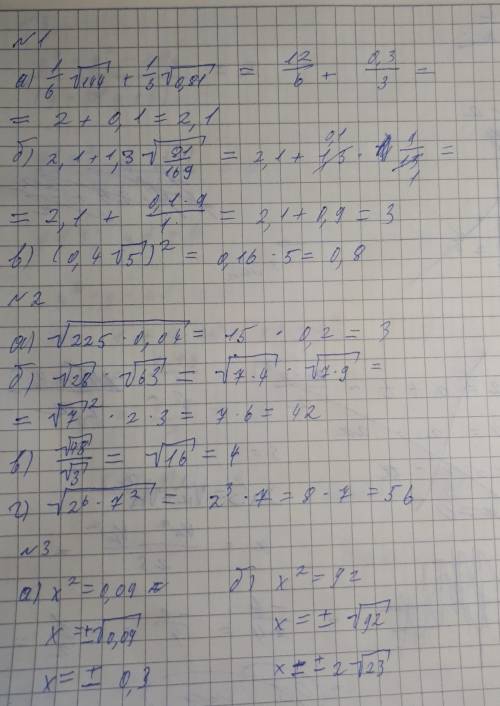 №1
а) 1/6 √144 + 1/3 √0,81 = 12/6 + 0,3/3 =
= 2 + 0,1 = 2,1
б) 2,1 + 1,3 √(81/169) = 2,1 + 1,3 ·
= 2,1 + (0,1 · 9)/1 = 2,1 + 0,9 = 3
в) (0,4 √5)² = 0,16 · 5 = 0,8
№2
а) √(225 · 0,04) = 15 · 0,2 = 3
б) √28 · √63 = √(7·4) · √(7·9) =
= √7² · 2 · 3 = 7 · 6 = 42
в) √48/√3 = √16 = 4
г) √(2⁶ · 7²) = 2³ · 7 = 8 · 7 = 56
№3
а) x² = 0,09
x = ±√0,09
x = ± 0,3
б) x² = 92
x = ± √92
x = ± 2√23